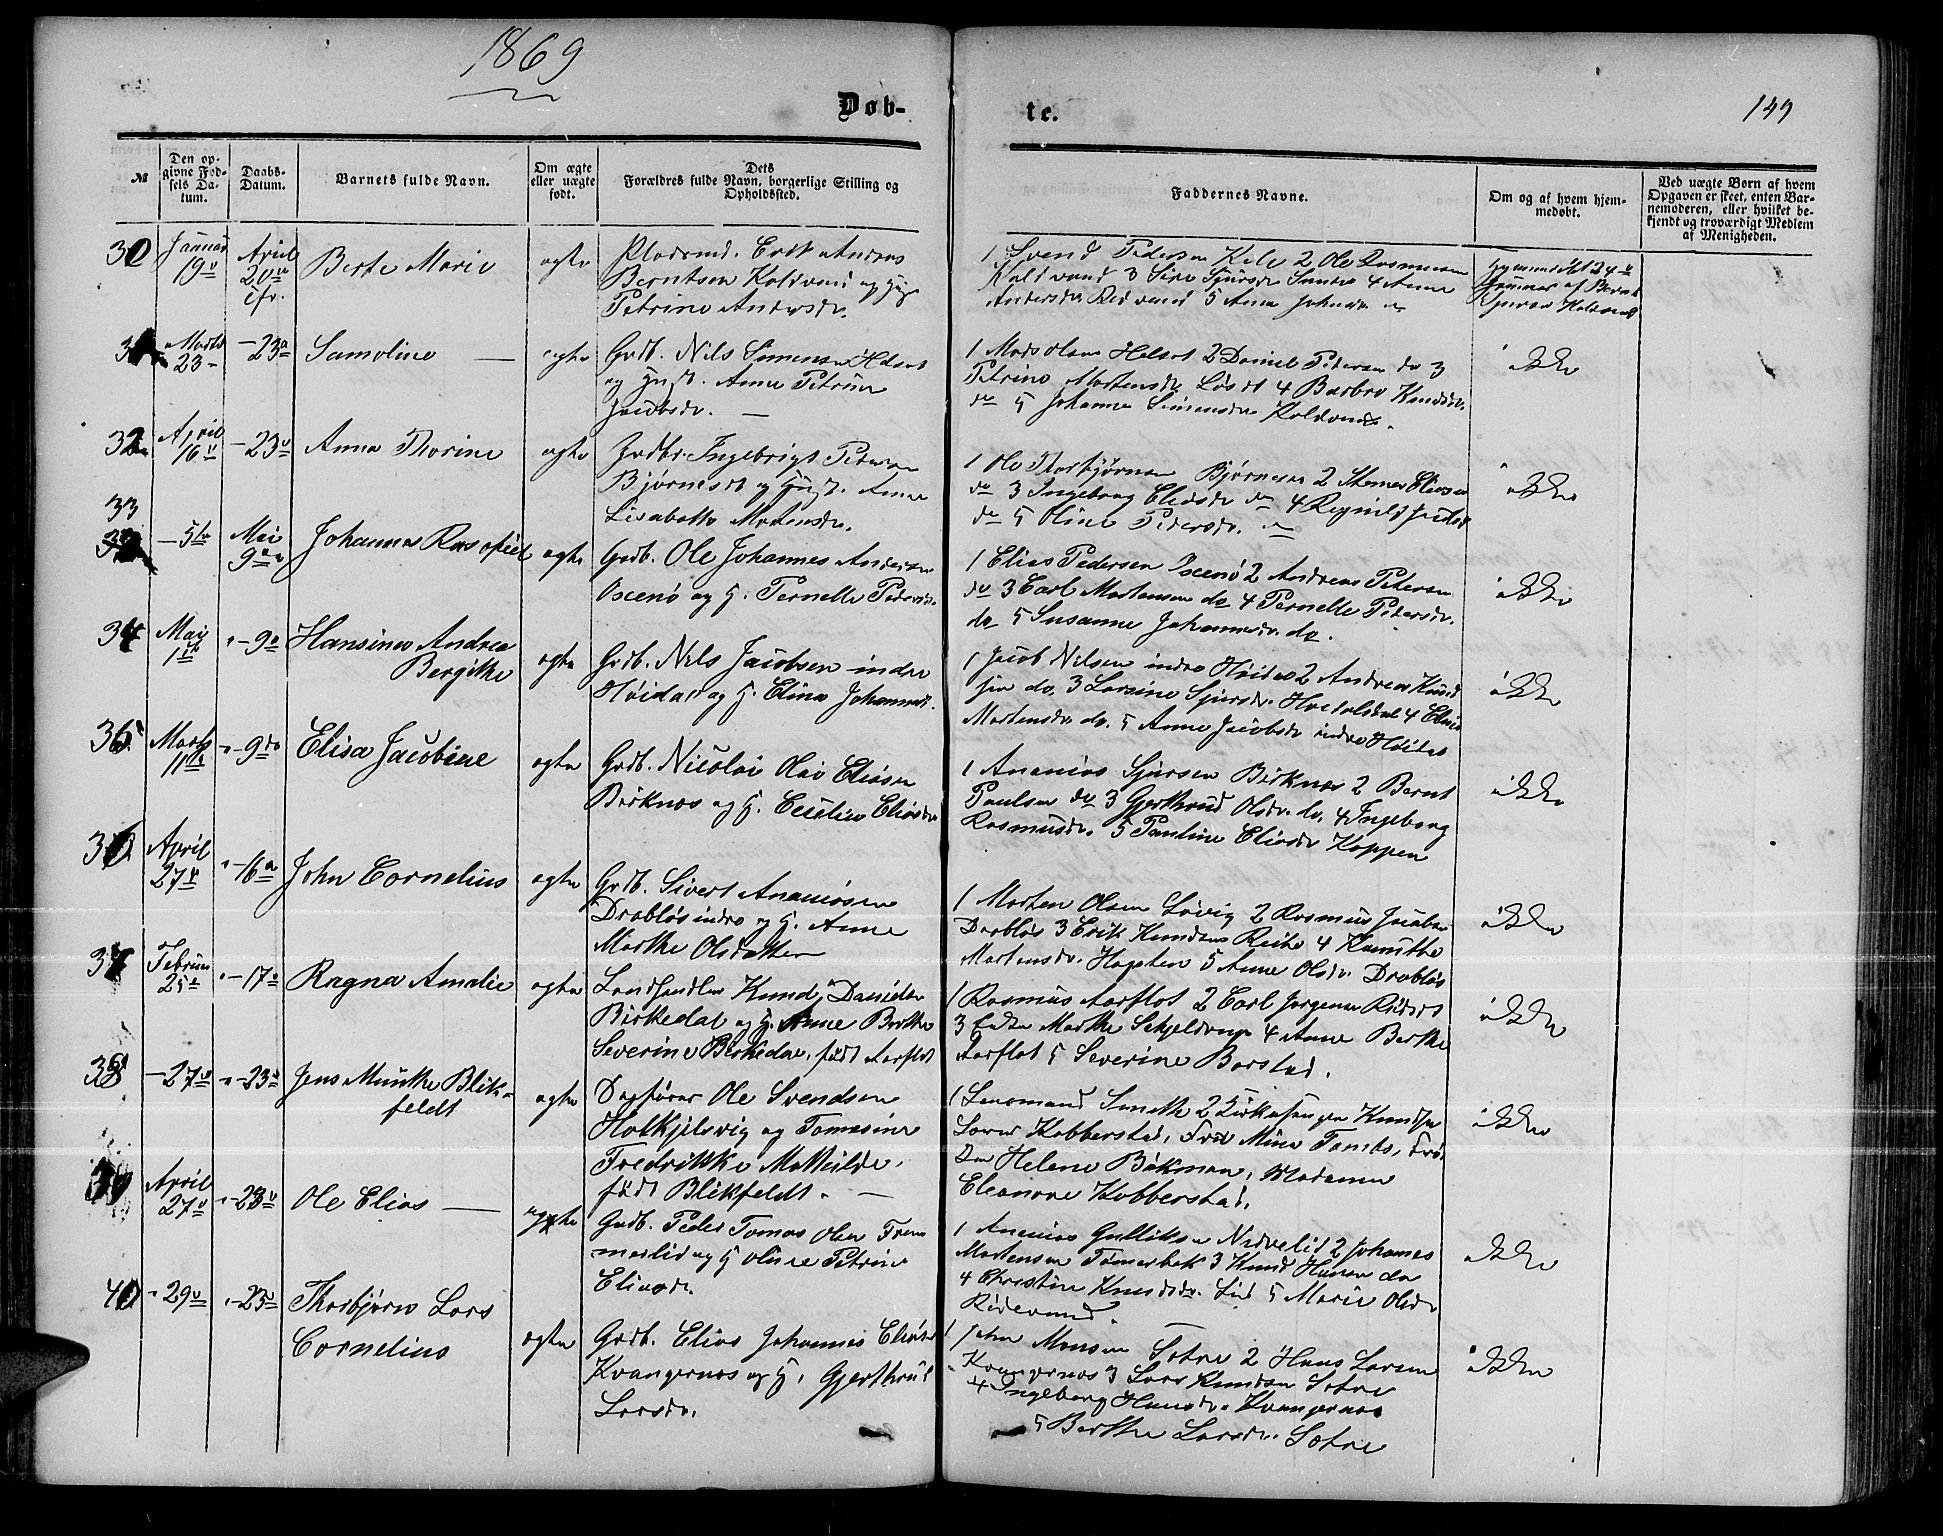 1869
Døb-
te.
149
№
Den opgivne Fødsels Datum.
Daabs-Datum.
Barnets fulde Navn.
Om ægte eller uægte født.
Dets Forældres fulde Navn, borgerlige Stilling og Opholdssted.
Faddernes Navne.
Om og af hvem hjemmedøbt.
Ved uægte Børn af hvem Opgaven er skeet, enten Barnemoderen, eller hvilket bekjendt og troværdigt Medlem af Menigheden.
30 Januar 19 April 20 Berte Marie ægte
Pladsmd. Erik Andreas
Berntsen Koldvand og
Petrine Andersdr.
1 Svend Pedersen Kile 2 Ole Rasmussen
Koldvand 3 Sire Sjursdr 4 Anne
Andersdr Ridvand 5 Anna Johnsdr
hjemmedøbt 24
Januar af Bernt
31 Marts 23 - 23 Samoline — ægte
Grdb. Nils Simonsen Helset
og Anne Petrine
Jacobsdr. —
1 Mads Olsen Helset 2 Daniel Pedersen do 3
Petrine Mortensdr Løset 4 Barbro Knudsdr.
do 5 Johanne Simensdr Koldvand.
ikke
32 April 16 - 23 Anna Thorine ægte
Grdbr. Ingebrigt Petersen
Bjørneset og Anne
Lisabette Mortensdr.
1 Ole Thorbjørnsen Bjørneset 2 Steiner Eliasen
do 3 Ingeborg Eliasdr do 4 Regnild
do 5 Oline Pedersdr.
ikke
33
- 5te Mai 9 Johannes Rasopiel ægte
Grdb. Ole Johannes Andersen
Oscenø og H. Pernelle Pedersdr.
1 Elias Pedersen Oscenø 2 Andreas Petersen
do 3 Carl Mortensen do 4 Pernelle Pedersdr.
do 5 Susanne Johannesdr. do.
ikke
34 Mai 1 - 9 Hansine Andrea
Bergithe ægte
Grdb. Nils Jacobsen indre
Høidal og H. Elina Johannesd.
1 Jacob Nilsen indre Høidal 2 Andreas Knud
sen do. 3 Larsine Sjursdr. 4 Eline
Mortensdr. do. 5 Anne Jacobsdr indre Høidal
ikke
35 Marts 11te - 9de Elisa Jacobine ægte
Grdb. Nicolai Olai Eliasen
Birknæs og H. Ceselie Eliasdr
1 Ananias Sjursen Birknæs 2 Bernt
Paulsen do 3 Gjerthrud Olsdr. do. 4 Ingeborg
Rasmusdr. 5 Pauline Eliasdr Koppen
ikke
36 April 27 - 16 John Cornelius ægte
Grdb. Sivert Ananiasen
Drabløs indre og H. Anne
Marthe Olsdatter
1 Morten Olsen Løvig 2 Rasmus Jacobsen
Drabløs 3 Erik Knudsen Reite 4 Knuthe
Mortensdr. Hogsten 5 Anne Olsdr. Drabløs
ikke
37 Februar 25 - 17 Ragna Amalie ægte
Landhandler Knud Danielsen
Birkedal og H. Anne Berthe
Severine Birkedal, født Aarflot
1 Rasmus Aarflot 2 Carl Jørgensen
3 Marthe Schjeldrup 4 Anne Berthe
Aarflot 5 Severine Barstad.
ikke
38 - 27 - 23 Jens Munthe Blik-
feldt ægte
Ole Svendsen
Holkjelsvig og Tomasine
Fredrikke Mathilde,
født Blikfeldt. —
1 Lensmand Smith 2 Kirkesanger Knudsen
Kobberstad, Frø Mina
Helene Bøkman, Madame
Eleonore Kobberstad.
ikke
39 April 27 - 23 Ole Elias — ægte
Grdb. Peder Tomas Olsen
og H Oline Petrine
Eliasdr.
1 Ananias Gulliksen Nidrelid 2 Johannes
Mortensen 3 Knud Hansen do
4 Christine Knudsdr. Lid 5 Marie Olsdr
Ridevand.
ikke
40 - 29 - 25 Thorbjørn Lars
Cornelius ægte
Grdb. Elias Johannes Eliasen
Kvangernæs og H. Gjerthrud
Larsdr.
1 John Monsen Sætre 2 Hans Larsen
Kvangernæs 3 Lars Knudsen Sætre
4 Ingeborg Hansdr. Kvangernæs
5 Berthe Larsdr. Sætre
ikke